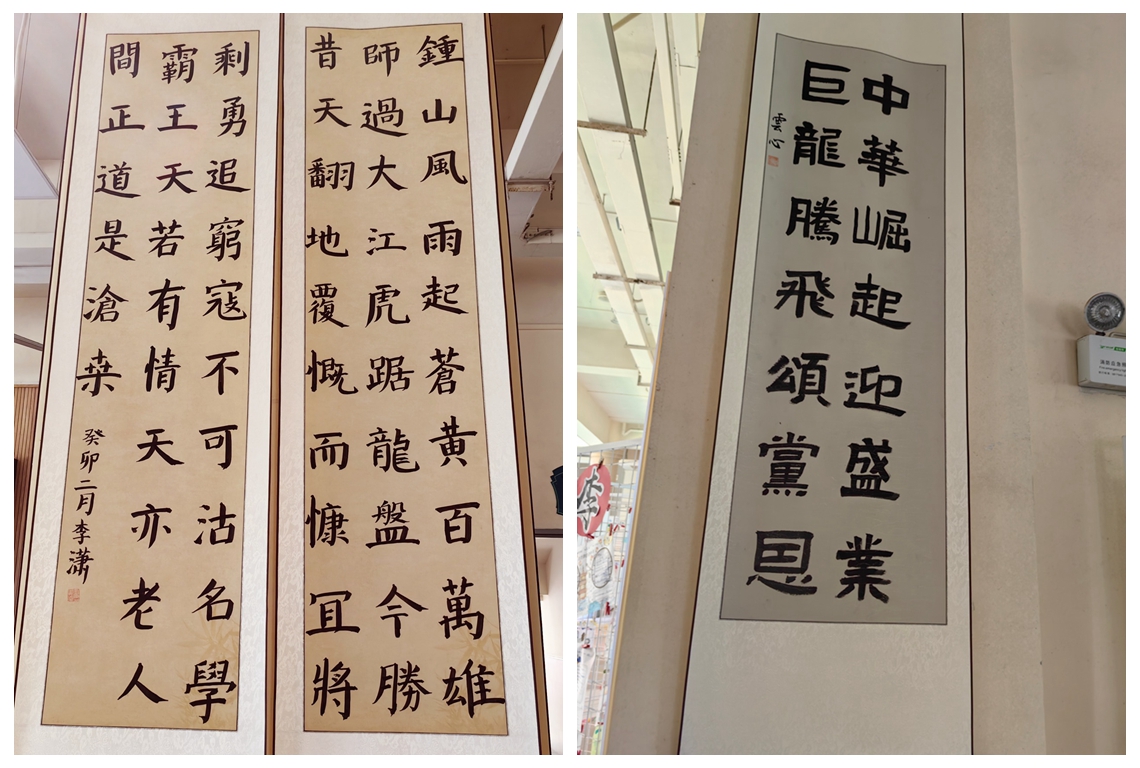 鍾山風雨起蒼黃百萬雄
師過大江虎踞龍盤今勝
昔天翻地覆慨而慷冝將
剩勇追窮寇不可沽名學
霸王天若有情天亦老人
間正道是滄桒
癸卯二月李瀟
中華崛起迎盛業
巨龍騰飛頌黨恩
雲心
李